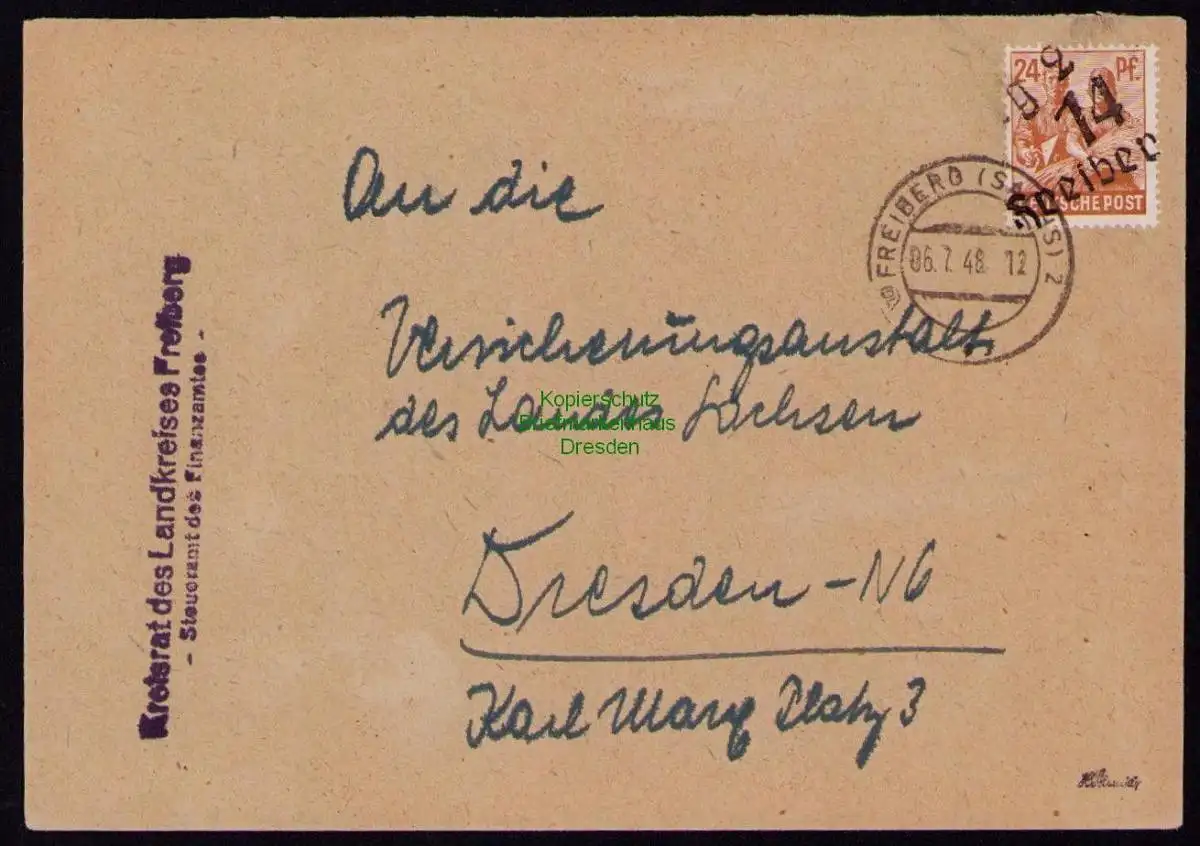 24 Pf.
14
Freiberg
DEUTSCHE POST
FREIBERG (SACHS) 2
06.7.48. 12
An die
Versicherungsanstalt
des Landes Sachsen
Dresden-N6
Karl Marx Platz 3
Kreisrat des Landkreises Freiberg
- Steueramt des Finanzamtes -
Kopierschutz
Briefmarkenhaus
Dresden